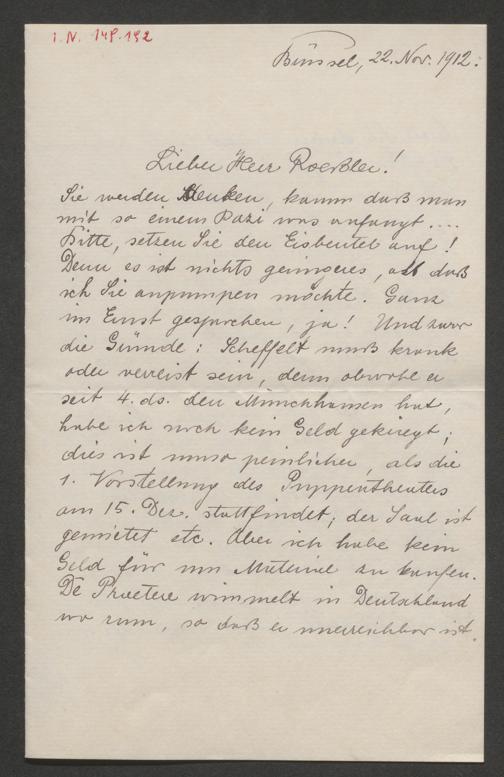 I.N. 148.192
Brüssel, 22. Nov. 1912.
Lieber Herr Roeßler!
Sie werden denken, kaum daß man
mit so einem Pazi was anfangt....
Bitte, setzen Sie den Eisbeutel auf!
Denn es ist nichts geringeres, als daß
ich Sie anpumpen möchte. Ganz
im Ernst gesprochen, ja! Und zwar
die Gründe: Scheffelt muß krank
oder verreist sein, denn obwohl er
seit 4. ds. den Münchhausen hat,
habe ich noch kein Geld gekriegt;
dies ist umso peinlicher, als die
1. Vorstellung des Puppentheaters
am 15. Dez. stattfindet; der Saal ist
gemietet etc. Aber ich habe kein
Geld für um Material zu kaufen.
De Praetere wimmelt in Deutschland
wo rum, so daß er unerreichbar ist.